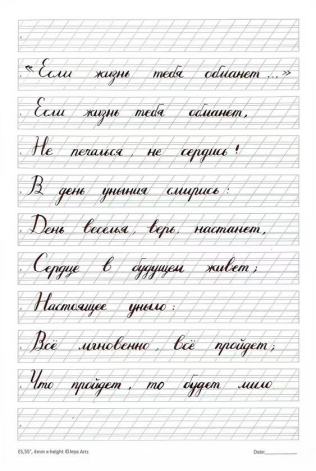 «Если жизнь тебя обманет...»
Если жизнь тебя обманет,
Не печалься, не сердись!
В день уныния смирись:
День веселья, верь, настанет,
Сердце в будущем живет;
Настоящее уныло:
Всё мгновенно, всё пройдет;
Что пройдет, то будет мило
55°, 4mm x-height ©Jeya Arts
Date: